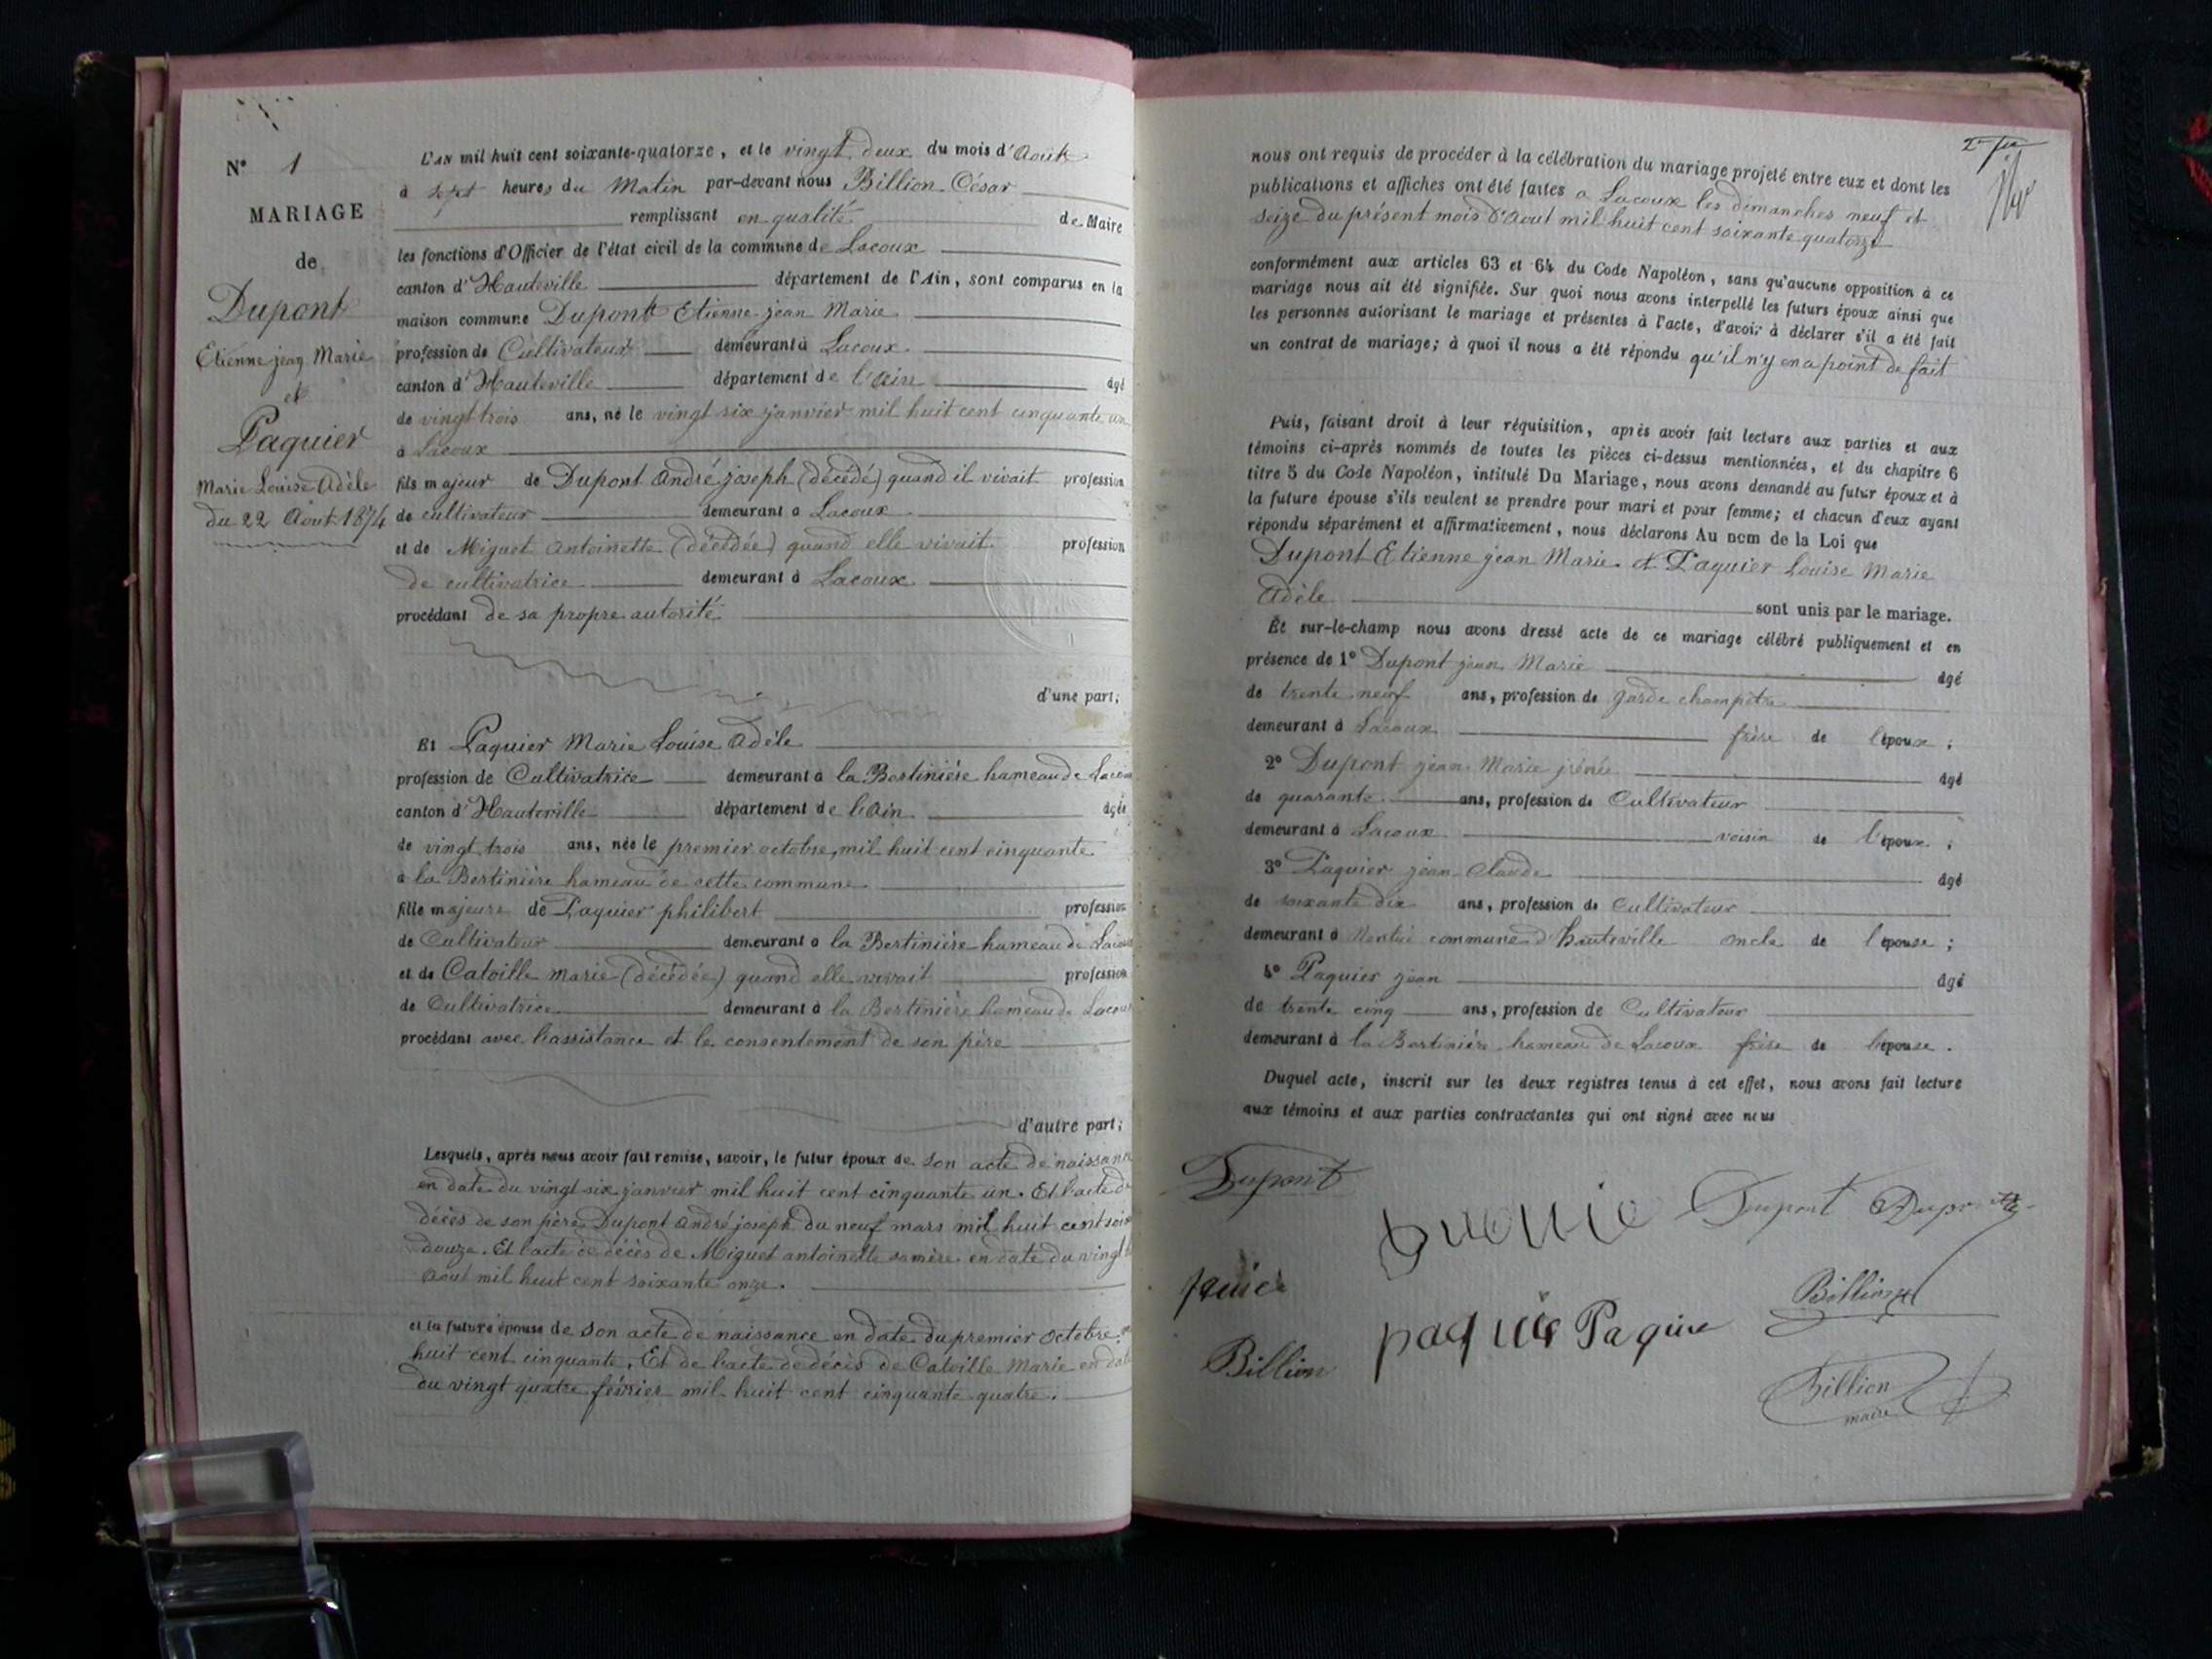 N° 1
MARIAGE
de
Dupont
Etienne jean Marie
et
Paquier
Marie Louise Adèle
du 22 Aout 1874
L'AN mil huit cent soixante-quatorze, et le vingt deux du mois d'Aout
à sept heures du Matin par-devant nous Billion César
remplissant en qualité de Maire
les fonctions d'Officier de l'état civil de la commune de Lacoux
canton d'Hauteville département de l'Ain, sont comparus en la
maison commune Dupont Etienne jean Marie
profession de Cultivateur demeurant à Lacoux
canton d'Hauteville département de l'Ain âgé
de vingt trois ans, né le vingt six janvier mil huit cent cinquante un
à Lacoux
fils majeur de Dupont André joseph (décédé) quand il vivait profession
de cultivateur demeurant à Lacoux
et de Miguet Antoinette (décédée) quand elle vivait profession
de cultivatrice demeurant à Lacoux
procédant de sa propre autorité
d'une part;
Et Paquier Marie Louise Adèle
profession de Cultivatrice demeurant à la Bertinière hameau de Lacoux
canton d'Hauteville département de l'Ain âgée
de vingt trois ans, née le premier octobre mil huit cent cinquante
à la Bertinière hameau de cette commune
fille majeure de Paquier philibert profession
de Cultivateur demeurant à la Bertinière hameau de Lacoux
et de Catoille marie (décédée) quand elle vivait profession
de Cultivatrice demeurant à la Bertinière hameau de Lacoux
procédant avec l'assistance et le consentement de son père
d'autre part;
Lesquels, après nous avoir fait remise, savoir, le futur époux de son acte de naissance
en date du vingt six janvier mil huit cent cinquante un. Et l'acte de
décès de son père Dupont André joseph du neuf mars mil huit cent soix
douze. Et l'acte de décès de Miguet antoinette sa mère en date du vingt
Aout mil huit cent soixante onze.
et la future épouse de son acte de naissance en date du premier octobre
huit cent cinquante. Et de l'acte de décès de Catoille Marie en date
du vingt quatre février mil huit cent cinquante quatre.
nous ont requis de procéder à la célébration du mariage projeté entre eux et dont les
publications et affiches ont été faites a Lacoux les dimanches neuf et
seize du présent mois d'Aout mil huit cent soixante quatorze
conformément aux articles 63 et 64 du Code Napoléon, sans qu'aucune opposition à ce
mariage nous ait été signifiée. Sur quoi nous avons interpellé les futurs époux ainsi que
les personnes autorisant le mariage et présentes à l'acte, d'avoir à déclarer s'il a été fait
un contrat de mariage; à quoi il nous a été répondu qu'il n'y en a point de fait
Puis, faisant droit à leur réquisition, après avoir fait lecture aux parties et aux
témoins ci-après nommés de toutes les pièces ci-dessus mentionnées, et du chapitre 6
titre 5 du Code Napoléon, intitulé Du Mariage, nous avons demandé au futur époux et à
la future épouse s'ils veulent se prendre pour mari et pour femme; et chacun d'eux ayant
répondu séparément et affirmativement, nous déclarons Au nom de la Loi que
Dupont Etienne jean Marie et Paquier Louise Marie
Adèle sont unis par le mariage.
Et sur-le-champ nous avons dressé acte de ce mariage célébré publiquement et en
présence de 1° Dupont jean Marie âgé
de trente neuf ans, profession de garde champêtre
demeurant à Lacoux frère de l'époux;
2° Dupont jean Marie âgé
de quarante ans, profession de Cultivateur
demeurant à Lacoux voisin de l'époux;
3° Paquier jean Claude âgé
de soixante dix ans, profession de Cultivateur
demeurant à commune d'hauteville oncle de l'épouse;
4° Paquier jean âgé
de trente cinq ans, profession de Cultivateur
demeurant à la Bertinière hameau de Lacoux frère de l'épouse.
Duquel acte, inscrit sur les deux registres tenus à cet effet, nous avons fait lecture
aux témoins et aux parties contractantes qui ont signé avec nous
Dupont
Dupont Dupont
Billion
Billion
Billion
maire